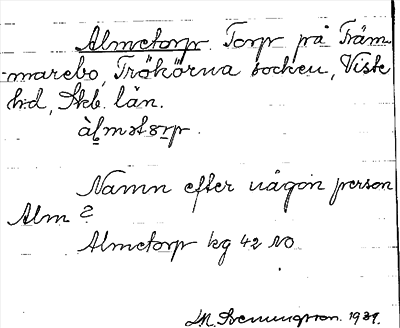 Almetorp. Torp på Främ-
marebo, Trökörna socken, Viste
hd, Skb. län.
àlmətɔrp.
Namn efter någon person
Alm?
Almetorp kg 42 NO
1931.